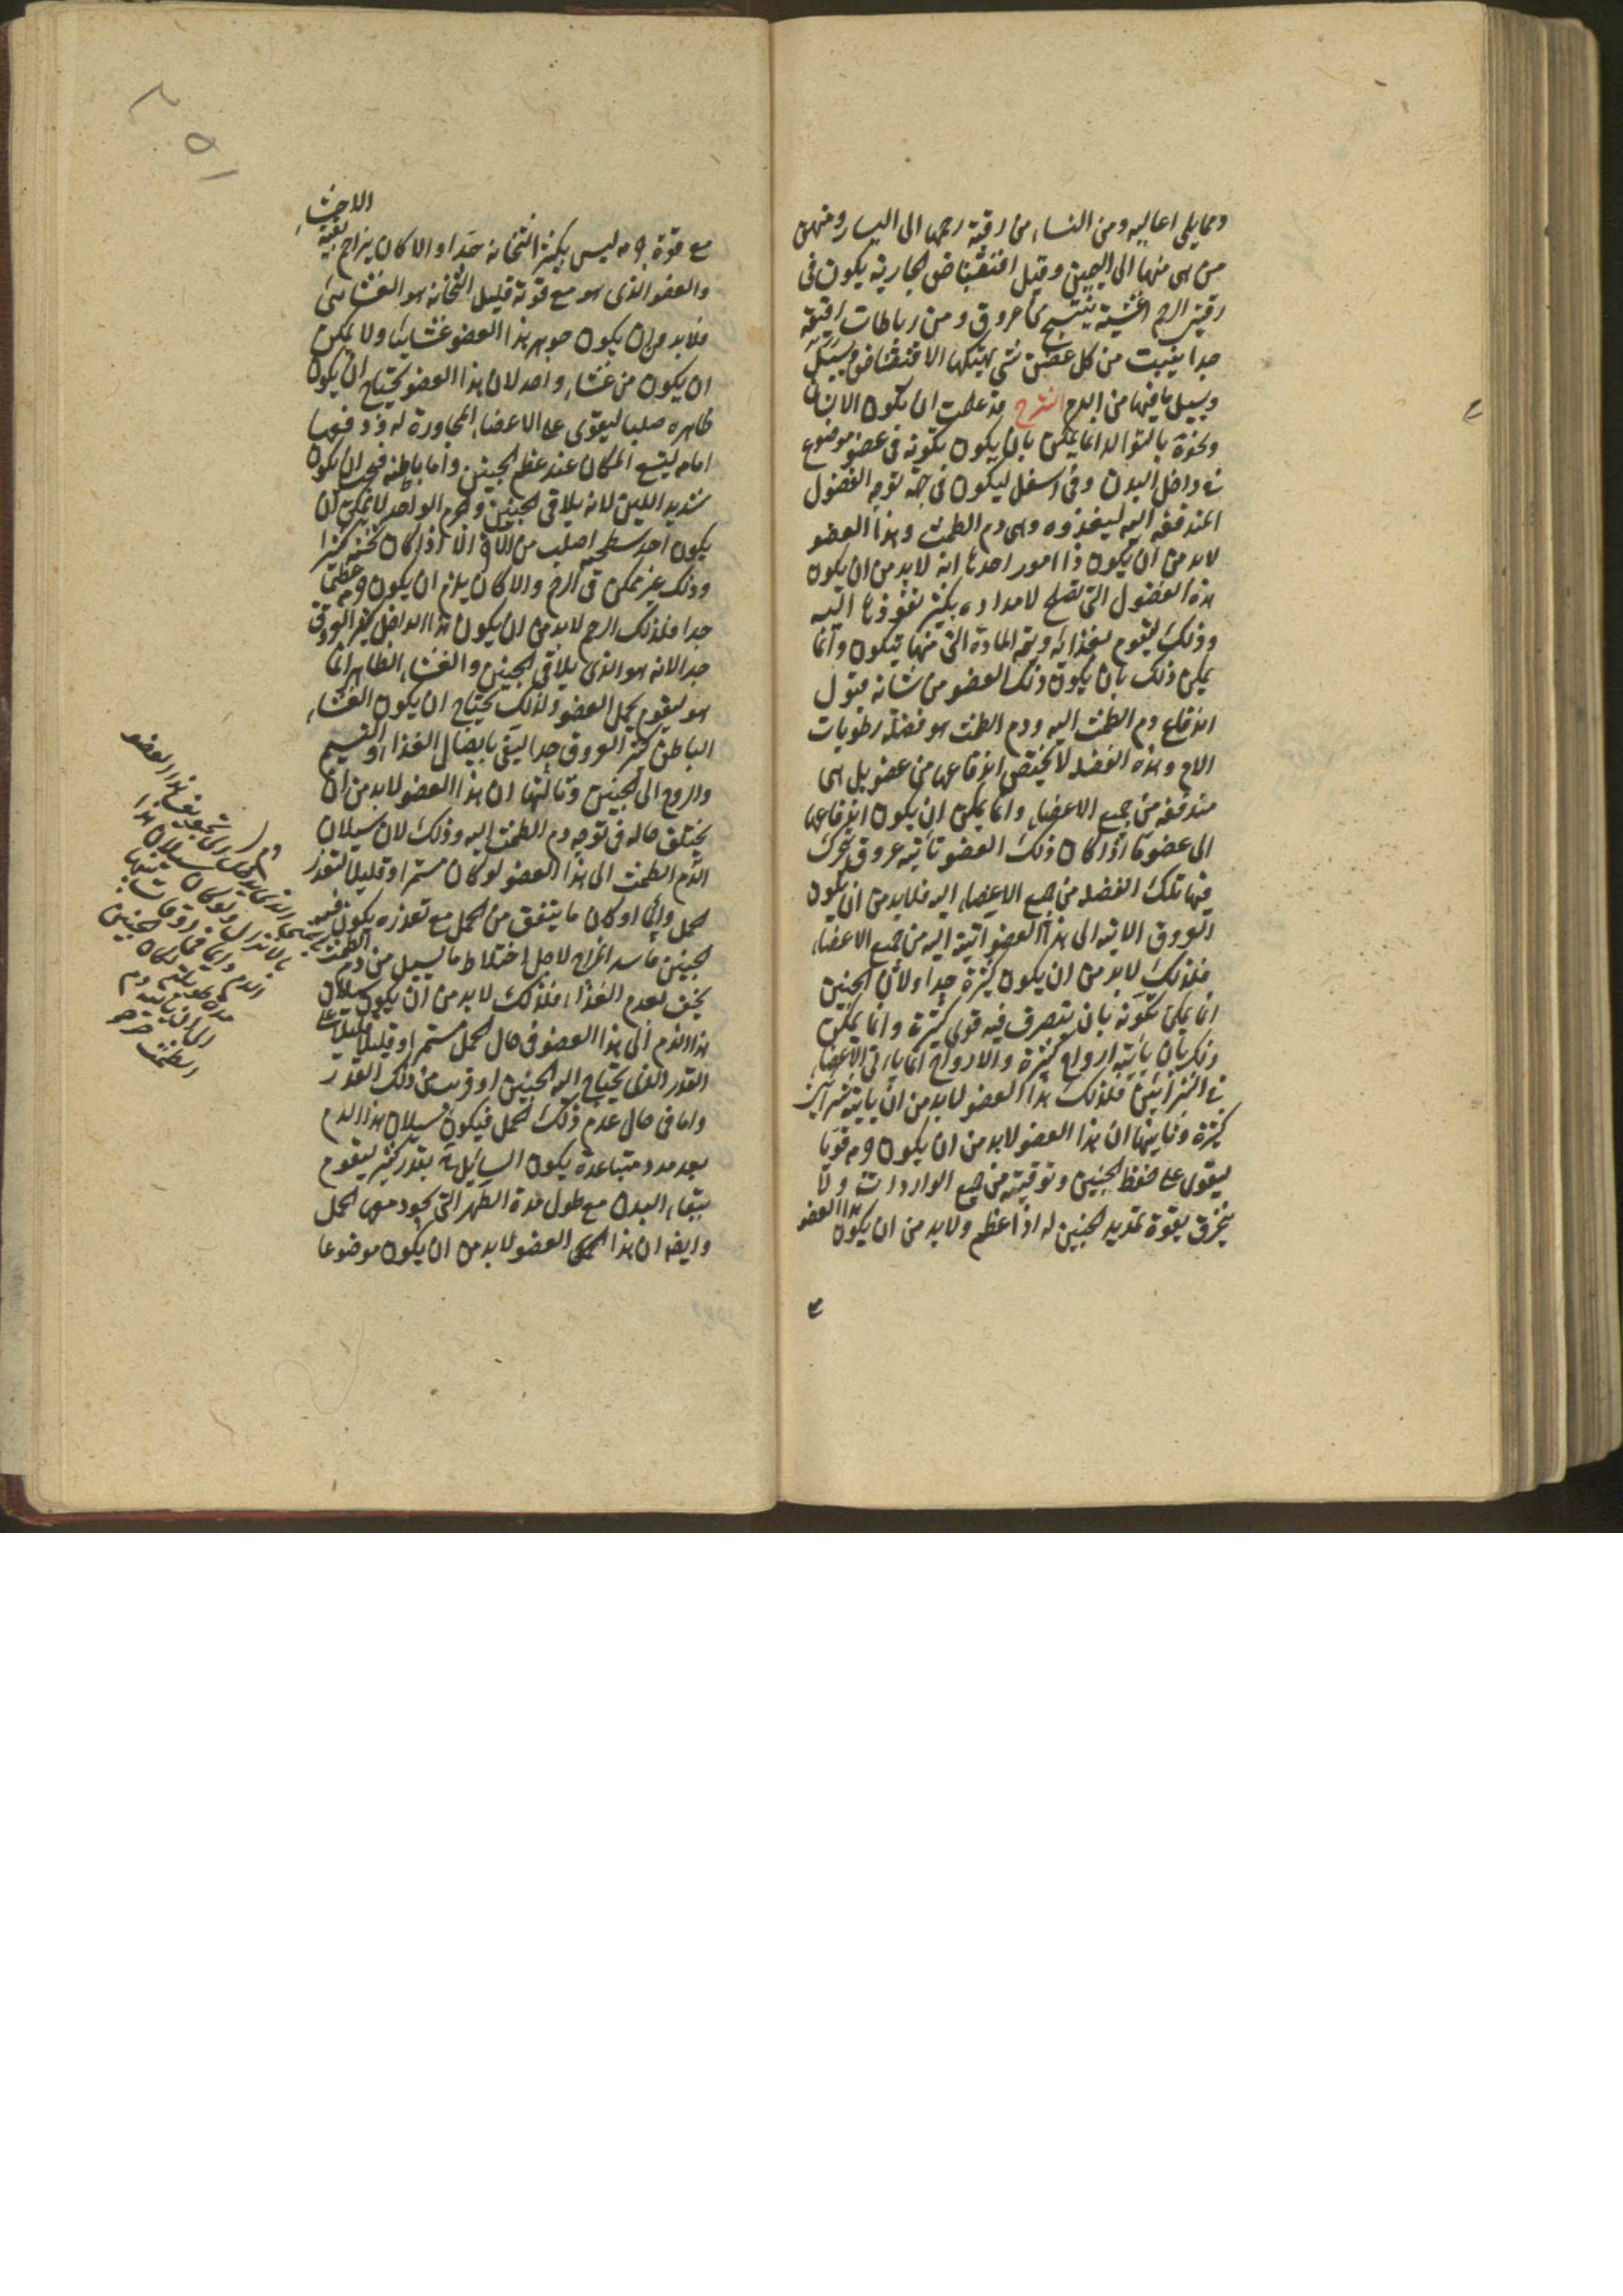 ومما يلى اعاليه ومن النساء من رقبة رحمها الى اليسار ومنهن
من هى منها الى اليمين وقبل افتضاض الجارية يكون فى
رقبة الرحم اغشية ينتسج من عروق ومن رباطات رقيقة
جدا ينبت من كل غضن شى يهتكها الافتضاض
ويسيل ما فيها من الدم الشرح قد علمت ان يكون الانسان
ونحوه بالتوالد انما يمكن بان يكون تكونه فى عضو موضوع
فى داخل البدن وفى اسفل ليكون فى جهة توجه الفضول
المندفعة اليه ليغذوه وهى دم الطمث وهذا العضو
لا بد من ان يكون ذا امور احدها انه لا بد من ان يكون
هذه الفضول التى تصلح لامداده يكثر نفوذها اليه
وذلك ليقوم بغذائه وبتمم المادة التى منها يتكون وانما
يمكن ذلك بان يكون ذلك العضو من شانه قبول
اندفاع دم الطمث اليه ودم الطمث هو فضلة رطوبات
الام وهذه الفضلة لا يختص اندفاعها من عضو بل هى
مندفعة من جميع الاعضاء وانما يمكن ان يكون اندفاعها
الى عضو ما اذا كان ذلك العضو تأتيه عروق تحرك
فيها تلك الفضلة من جميع الاعضاء اليه فلا بد من ان يكون
العروق الاتية الى هذا العضو اتية اليه من جميع الاعضاء
فلذلك لا بد من ان يكون كثيرة جدا ولان الجنين
انما يمكن تكونه بان يتصرف فيه قوى كثيرة وانما يمكن
ذلك بان يأتيه ارواح كثيرة والارواح انما يأتى الاعضاء
فى الشرائين فلذلك هذا العضو لا بد من ان يأتيه شرائين
كثيرة وثانيها ان هذا العضو لا بد من ان يكون جرمه قويا
ليقوى على حفظ الجنين وتوقيته من جميع الواردات ولا
ينخرق بقوة تمديد الجنين له اذا عظم ولا بد من ان يكون هذا العضو
مع قوة جرمه ليس بكثير الثخانة جدا والا كان يزاحم بقية الاحشاء
والعضو الذى هو مع قوته قليل الثخانة هو الغشائى
فلا بد من ان يكون جوهر هذا العضو غشائيا ولا يمكن
ان يكون من غشاء واحد لان هذا العضو يحتاج ان يكون
ظاهره صلبا ليقوى على الاعضاء المجاورة له ودفعها
امامه ليتسع المكان عند عظم الجنين واما باطنه فيجب ان يكون
شديد اللين لانه يلاقى الجنين والجرم الواحد لا يمكن ان
يكون احد سطحيه اصلب من الاخر الا اذا كان ثخنه كثيرا
وذلك غير ممكن فى الرحم والا كان يلزم ان يكون جرمه عظيما
جدا فلذلك الرحم لا بد من ان يكون هذا الداخل كثير العروق
جدا لانه هو الذى يلاقى الجنين والغشاء الظاهر انما
هو ليقوم بحمل العضو ولذلك يحتاج ان يكون الغشاء
الباطن كثير العروق جدا ليفى بايصال الغذاء والنسيم
والروح الى الجنين وثالثها ان هذا العضو لا بد من ان
يختلف حاله فى توجه دم الطمث اليه وذلك لان سيلان
الدم الطمث الى هذا العضو لو كان مستمرا وقليلا لتعذر
الحمل واى او كان ما يتفق من الحمل مع تعذره يكون فيه
الجنين فاسد المزاج لاجل اختلاط ما يسيل من دم الطمث
يخنق لعدم الغذاء فلذلك لا بد من ان يكون سيلان
هذا الدم الى هذا العضو فى حال الحمل مستمرا وقليلا قليلا على
القدر الذى يحتاج اليه الجنين او قريب من ذلك القدر
واما فى حال عدم ذلك الحمل فيكون سيلان هذا الدم
بعد مدد متباعدة يكون السائل منه بقدر كثير ليقوم
بنقاء البدن مع طول مدة الطهر التى يجود معها الحمل
وايضا ان هذا العضو لا بد من ان يكون موضوعا
الى تجويف هذا العضو
ولو كان سيلان هذا
الدم وانما اوقات بينها
مدة طويلة لكان الجنين
الى ان يأتيه دم
الطمث